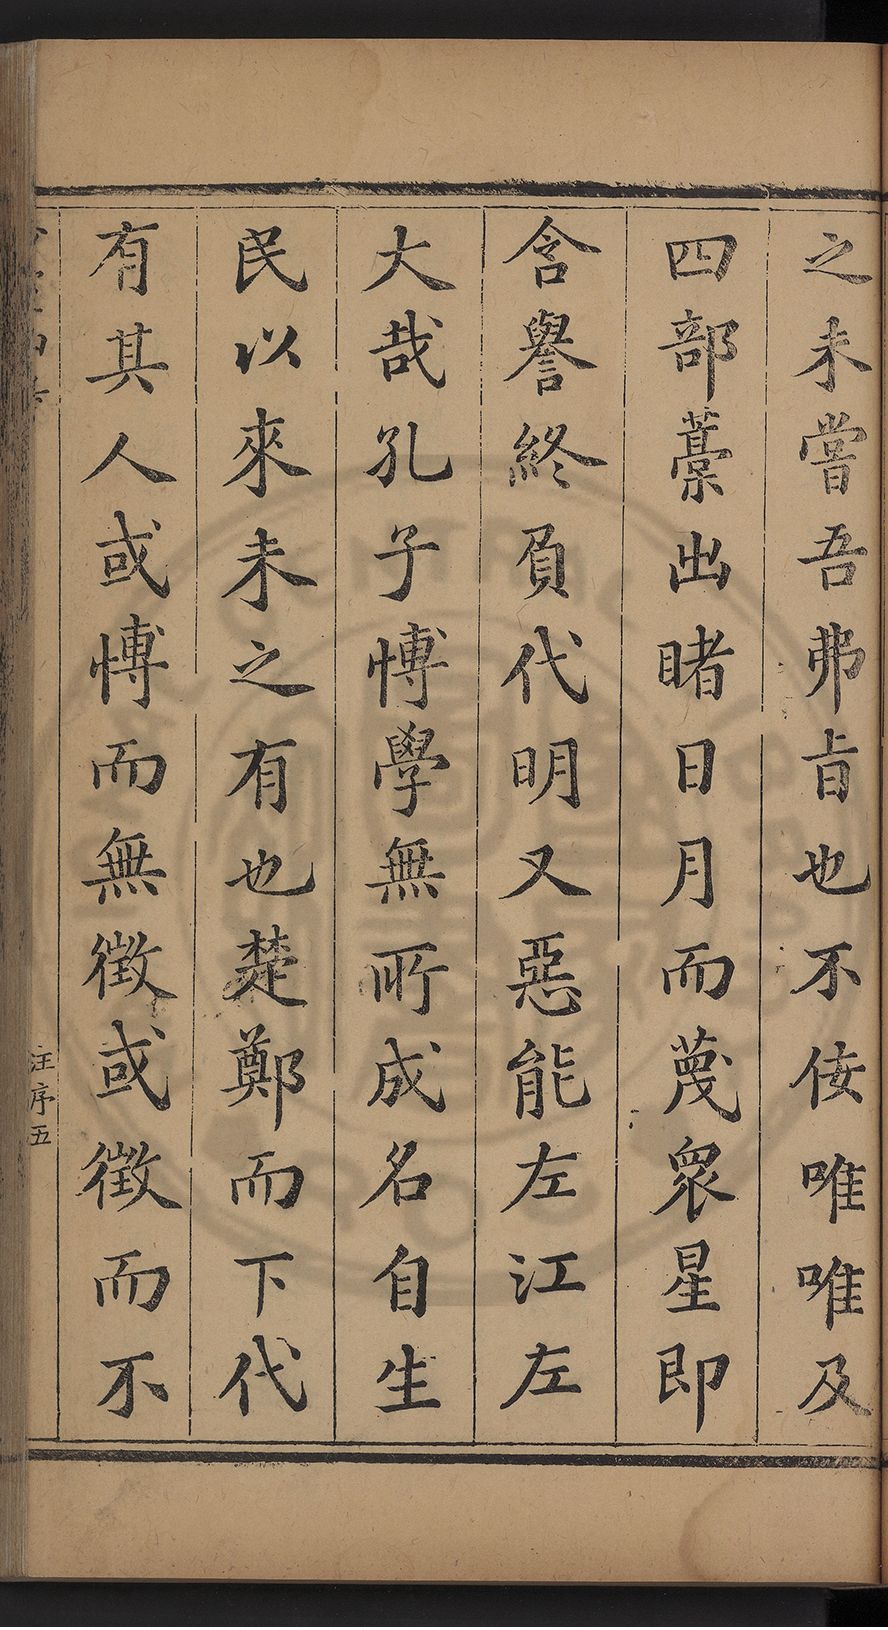 之未嘗吾弗㫖也不佞唯唯及
四部藳出睹日月而蔑衆星即
含譽終負代明又惡能左江左
大哉孔子愽學無所成名自生
民以來未之有也楚鄭而下代
有其人或愽而無徵或徵而不
汪序五